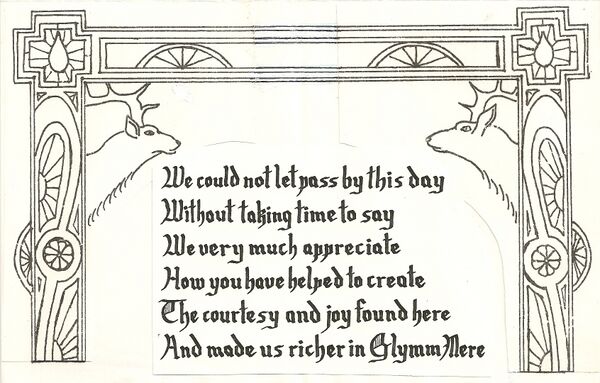 We could not let pass by this day
Without taking time to say
We very much appreciate
How you have helped to create
The courtesy and joy found here
And made us richer in Glymm Mere